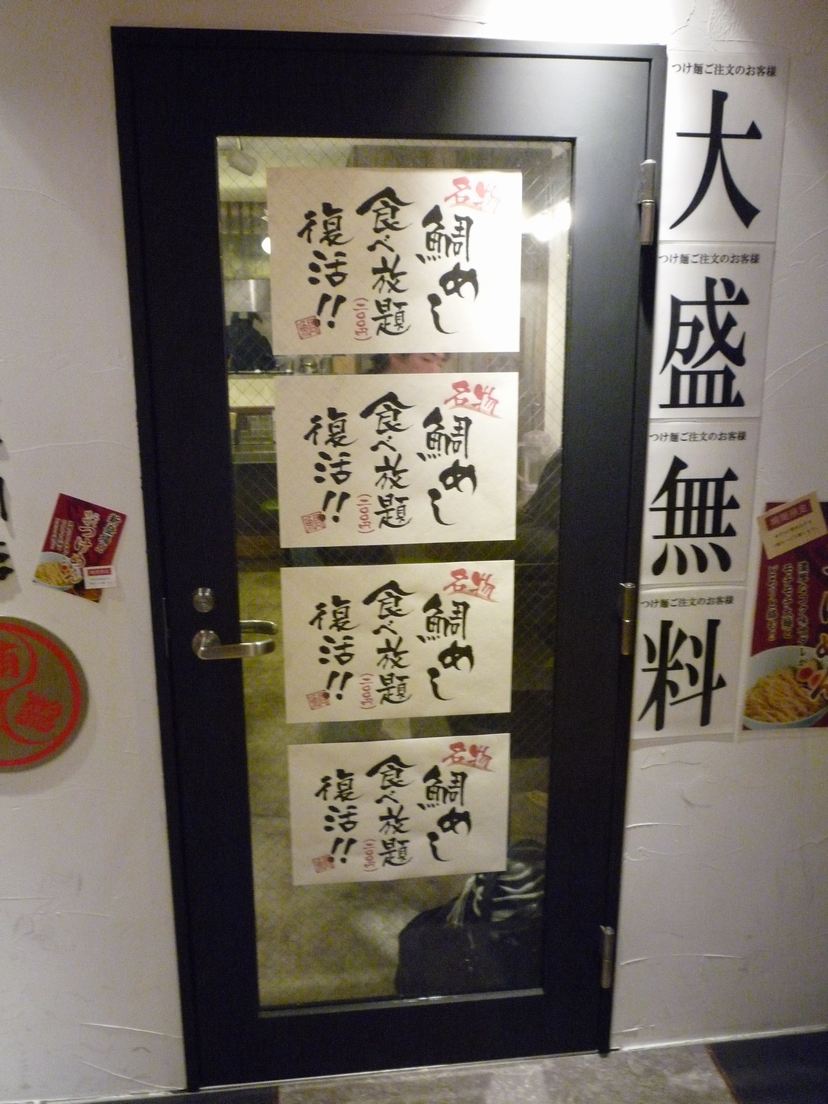 名物
鯛めし
食べ放題
復活!!
名物
鯛めし
食べ放題
復活!!
名物
鯛めし
食べ放題
復活!!
名物
鯛めし
食べ放題
復活!!
つけ麺ご注文のお客様
大
つけ麺ご注文のお客様
盛
つけ麺ご注文のお客様
無
つけ麺ご注文のお客様
料